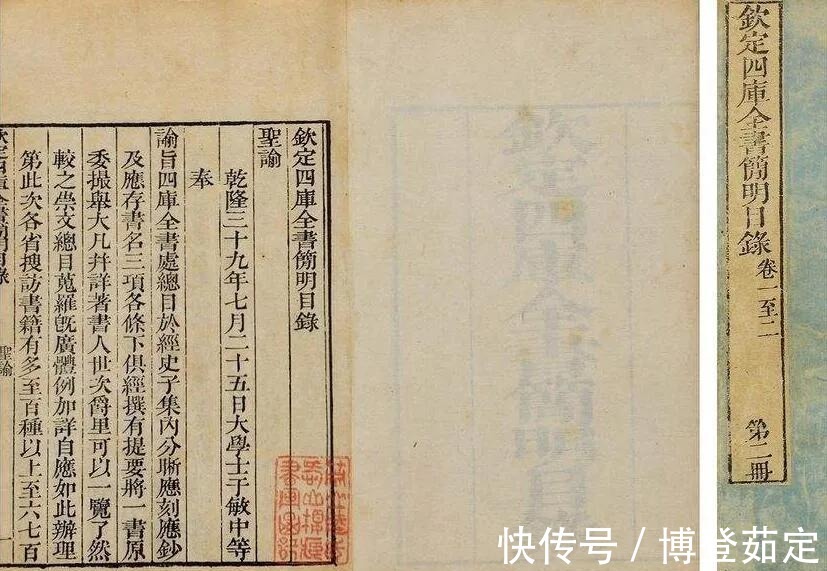 欽定四庫全書簡明目錄 卷一至二
第二冊
欽定四庫全書簡明目
欽定四庫全書簡明目錄
聖諭
乾隆三十九年七月二十五日大學士于敏中等
奉
諭旨四庫全書處總目於經史子集內分晰應刻應鈔
及應存書名三項各條下俱經撰有提要將一書原
委撮舉大凡幷詳著書人世次爵里可以一覽了然
較之崇文總目蒐羅旣廣體例加詳自應如此辦理
第此次各省搜訪書籍有多至百種以上至六七百
欽定四庫全書簡明目錄 聖諭 一
快传号 / 博登茹定